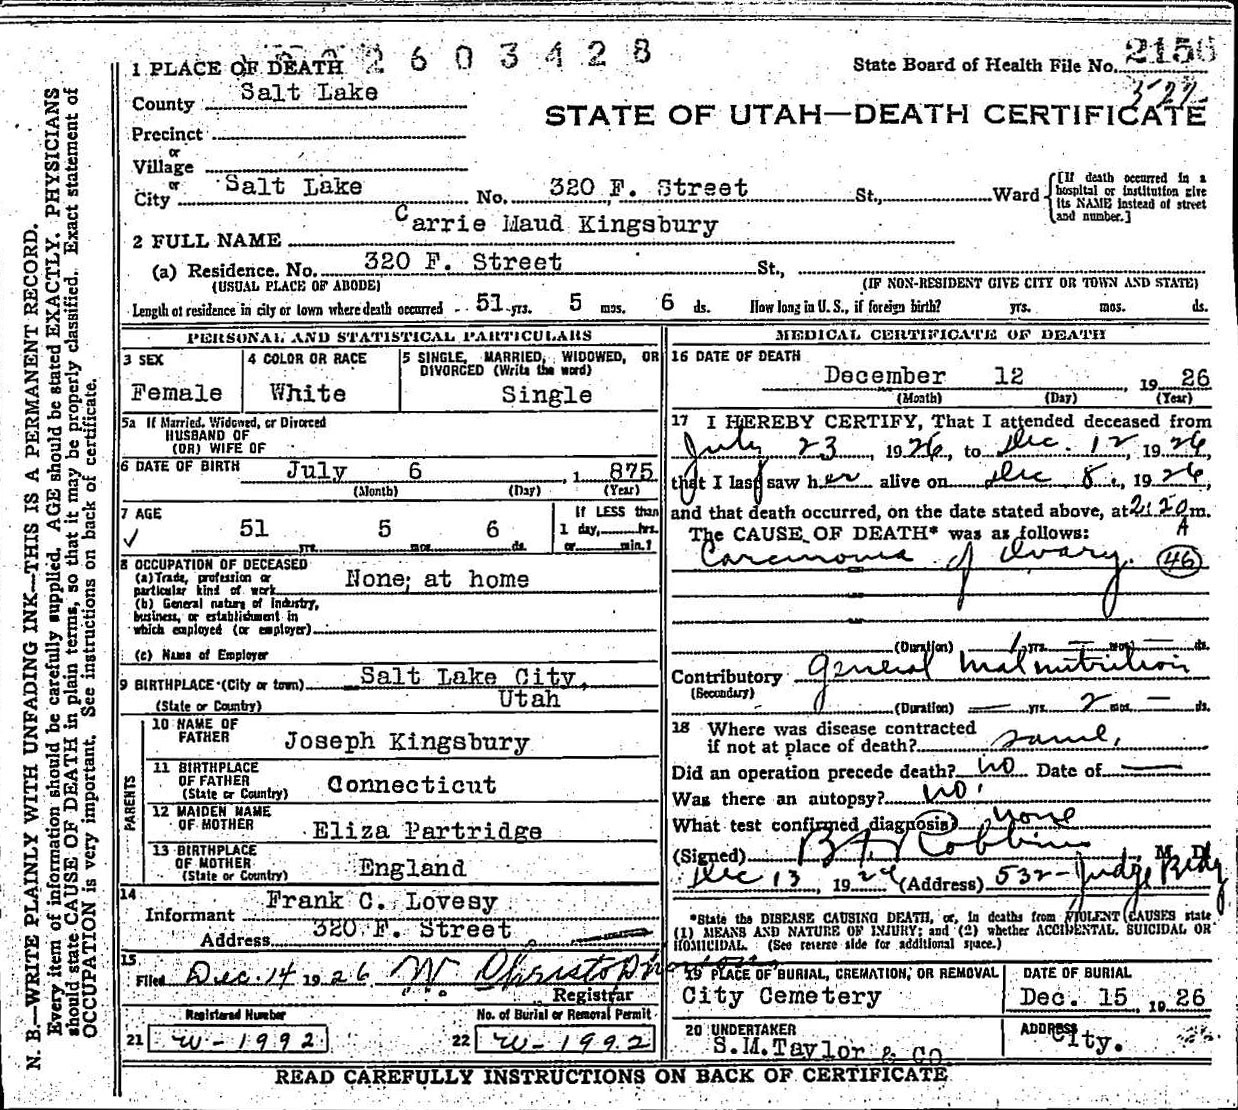 2603428
2156
527
1 PLACE OF DEATH
State Board of Health File No.
County Salt Lake
STATE OF UTAH—DEATH CERTIFICATE
Precinct
or
Village
or
City Salt Lake No. 320 F. Street St., Ward
[If death occurred in a
hospital or institution give
its NAME instead of street
and number.]
2 FULL NAME Carrie Maud Kingsbury
(a) Residence. No. 320 F. Street St.,
(USUAL PLACE OF ABODE) (IF NON-RESIDENT GIVE CITY OR TOWN AND STATE)
Length of residence in city or town where death occurred 51 yrs. 5 mos. 6 ds. How long in U.S., if foreign birth? yrs. mos. ds.
PERSONAL AND STATISTICAL PARTICULARS
3 SEX
Female
4 COLOR OR RACE
White
5 SINGLE, MARRIED, WIDOWED, OR
DIVORCED (Write the word)
Single
5a If Married, Widowed, or Divorced
HUSBAND OF
(OR) WIFE OF
6 DATE OF BIRTH July 6, 1 875
(Month) (Day) (Year)
7 AGE
51 yrs. 5 mos. 6 ds.
If LESS than
1 day, hrs.
or min.?
8 OCCUPATION OF DECEASED
(a) Trade, profession or
particular kind of work None; at home
(b) General nature of Industry,
business, or establishment in
which employed (or employer)
(c) Name of Employer
9 BIRTHPLACE (City or town) Salt Lake City,
(State or Country) Utah
PARENTS
10 NAME OF
FATHER Joseph Kingsbury
11 BIRTHPLACE
OF FATHER
(State or Country) Connecticut
12 MAIDEN NAME
OF MOTHER Eliza Partridge
13 BIRTHPLACE
OF MOTHER
(State or Country) England
14
Informant Frank C. Lovesy
Address 320 F. Street
15
Filed Dec. 14 1926 W. Christopherson
Registrar
Registered Number
21 W-1992
No. of Burial or Removal Permit
22 W-1992
MEDICAL CERTIFICATE OF DEATH
16 DATE OF DEATH
December 12, 1926
(Month) (Day) (Year)
17 I HEREBY CERTIFY, That I attended deceased from
July 23, 1926, to Dec. 12, 1926,
that I last saw her alive on Dec 8, 1926,
and that death occurred, on the date stated above, at 2:20 A m.
The CAUSE OF DEATH* was as follows:
Carcinoma of Ovary. 46
(Duration) 1 yrs. — mos. — ds.
Contributory general malnutrition
(Secondary)
(Duration) — yrs. 2 mos. — ds.
18 Where was disease contracted
if not at place of death? same,
Did an operation precede death? no Date of —
Was there an autopsy? no.
What test confirmed diagnosis) none
(Signed) Robbins M. D.
Dec 13, 1926 (Address) 532-Judge Bldg
*State the DISEASE CAUSING DEATH, or, in deaths from VIOLENT CAUSES state
(1) MEANS AND NATURE OF INJURY; and (2) whether ACCIDENTAL, SUICIDAL OR
HOMICIDAL. (See reverse side for additional space.)
19 PLACE OF BURIAL, CREMATION, OR REMOVAL
City Cemetery
DATE OF BURIAL
Dec. 15, 1926
20 UNDERTAKER
S.M.Taylor & CO.
ADDRESS
City.
READ CAREFULLY INSTRUCTIONS ON BACK OF CERTIFICATE
N. B.—WRITE PLAINLY WITH UNFADING INK—THIS IS A PERMANENT RECORD.
Every item of information should be carefully supplied. AGE should be stated EXACTLY. PHYSICIANS
should state CAUSE OF DEATH in plain terms, so that it may be properly classified. Exact statement of
OCCUPATION is very important. See instructions on back of certificate.